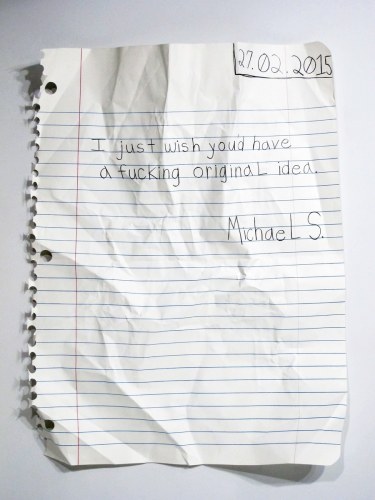 27.02.2015
I just wish you'd have
a fucking original idea.
Michael S.